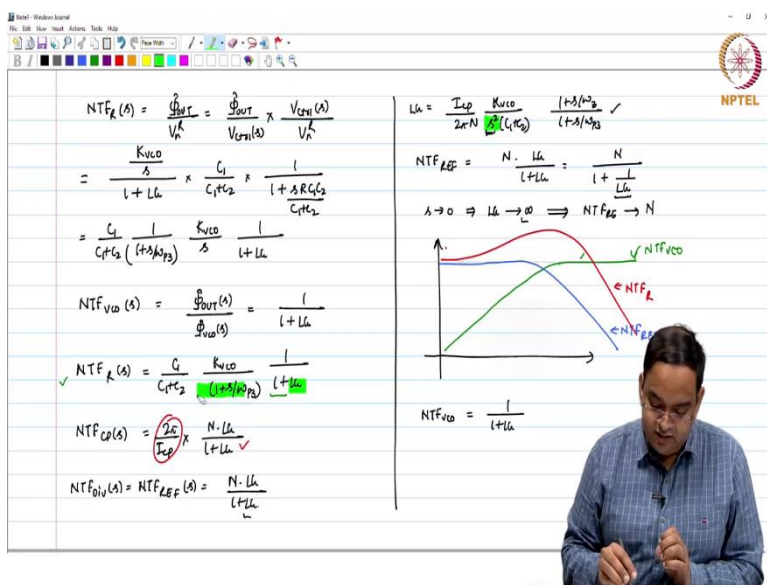 Note1 - Windows Journal
File Edit View Insert Actions Tools Help
Page Width
B I
NPTEL
NTF_R(s) = φ̂_OUT / V_n^R = φ̂_OUT / V_ctrl(s) × V_ctrl(s) / V_n^R
= (K_VCO / s) / (1 + LG) × C₁ / (C₁+C₂) × 1 / (1 + sRC₁C₂ / (C₁+C₂))
= C₁ / (C₁+C₂) 1 / (1+s/ω_P3) K_VCO / s 1 / (1+LG)
NTF_VCO(s) = φ̂_OUT(s) / φ̂_VCO(s) = 1 / (1+LG)
✓ NTF_R(s) = C₁ / (C₁+C₂) K_VCO / (1+s/ω_P3) 1 / (1+LG)
NTF_CP(s) = 2π / I_CP × N.LG / (1+LG) ✓
NTF_DIV(s) = NTF_REF(s) = N.LG / (1+LG)
LG = I_CP / 2πN K_VCO / s²(C₁+C₂) (1+s/ω_z) / (1+s/ω_P3) ✓
NTF_REF = N.LG / (1+LG) = N / (1 + 1/LG)
s→0 ⇒ LG→∞ ⇒ NTF_REF → N
NTF_VCO
←NTF_R
←NTF_RE
NTF_VCO = 1 / (1+LG)